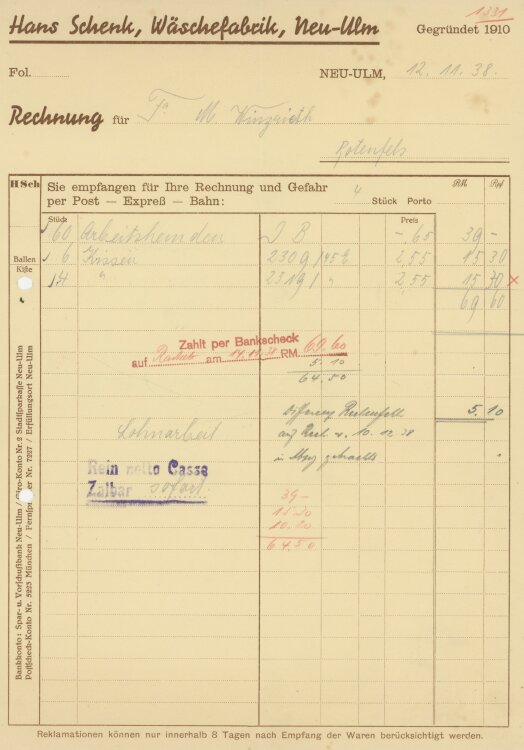 1331
Hans Schenk, Wäschefabrik, Neu-Ulm
Gegründet 1910
Fol.
NEU-ULM, 12. 11. 38.
Rechnung für Fa M.
Rotenfels
HSch
Sie empfangen für Ihre Rechnung und Gefahr
per Post – Expreß – Bahn:
4 Stück Porto
RM Rpf
Stück
Preis
60 Arbeitshemden J B –.65 39 –
Ballen
Kiste
6 Kissen 2309/45 2,55 15 30
" 2319/ " 2,55 ×
69 60
Zahlt per Bankscheck
auf am RM. 69.60
5.10
64.50
5.10
10.12.38
Lohnarbeit
Rein netto Casse
Zalbar sofort
39 –
10.20
64.50
Bankkonto: Spar- u. Vorschußbank Neu-Ulm / Giro-Konto Nr. 2 Stadtsparkasse Neu-Ulm
Postscheck-Konto Nr. 5223 München / Fernsprecher Nr. 7227 / Erfüllungsort Neu-Ulm
Reklamationen können nur innerhalb 8 Tagen nach Empfang der Waren berücksichtigt werden.